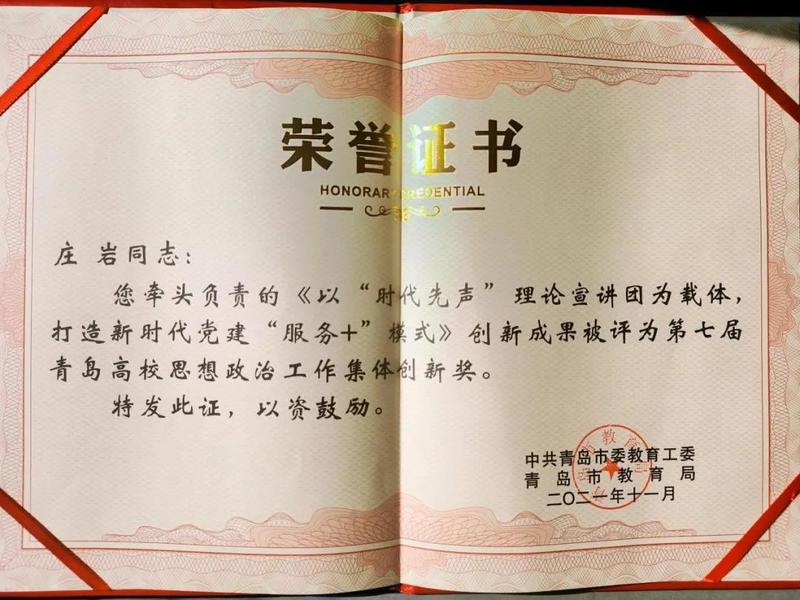 荣誉证书
HONORARY CREDENTIAL
庄 岩同志：
您牵头负责的《以“时代先声”理论宣讲团为载体，
打造新时代党建“服务+”模式》创新成果被评为第七届
青岛高校思想政治工作集体创新奖。
特发此证，以资鼓励。
中共青岛市委教育工委
青岛市教育局
二〇二一年十一月